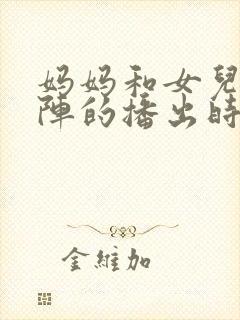 妈妈和女兒
陣的播出時
金維加